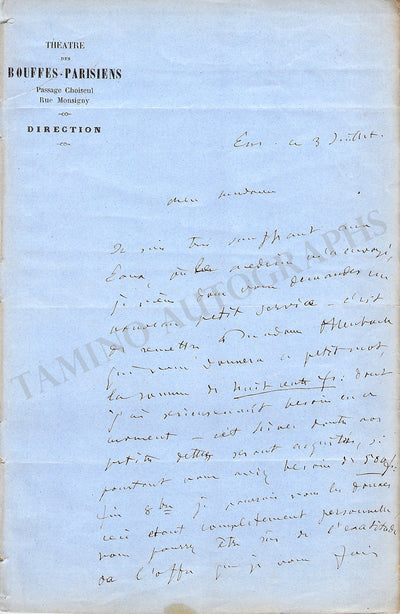 THÉATRE
DES
BOUFFES-PARISIENS
Passage Choiseul
Rue Monsigny
DIRECTION
Ems ce 3 Juillet.
Mon
Je suis très souffrant aux
Eaux, où le médecin m'a envoyé,
je viens vous demander un
nouveau petit service – c'est
de remettre à Madame Offenbach
qui vous donnera ce petit mot,
la somme de huit cents f: dont
j'ai sérieusement besoin en ce
moment – cet hiver toutes nos
petites dettes seront acquittées, si
pourtant vous aviez besoin de 500 f.
fin 8bre je pourrais vous les donner
ceci étant complètement personnel
vous pouvez être sûr de l'exactitude
de l'offre que je vous fais
TAMINO AUTOGRAPHS